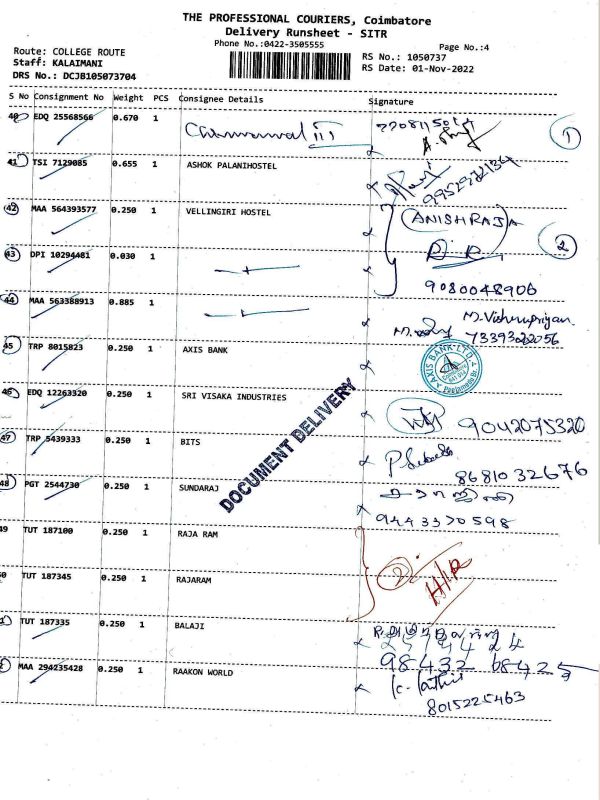 THE PROFESSIONAL COURIERS, Coimbatore
Delivery Runsheet - SITR
Phone No.:0422-3505555
Page No.:4
Route: COLLEGE ROUTE
Staff: KALAIMANI
DRS No.: DCJB105073704
RS No.: 1050737
RS Date: 01-Nov-2022
S No Consignment No Weight PCS Consignee Details Signature
40 EDQ 25568566 0.670 1
1
41 TSI 7129085 0.655 1 ASHOK PALANIHOSTEL
42 MAA 564393577 0.250 1 VELLINGIRI HOSTEL ANISHRAJA
2
43 DPI 10294481 0.030 1
9080048906
44 MAA 563388913 0.885 1
7339322056
45 TRP 8015823 0.250 1 AXIS BANK
AXIS BANK LTD
46 EDQ 12263320 0.250 1 SRI VISAKA INDUSTRIES
9042075320
47 TRP 5439333 0.250 1 BITS
8681032676
DOCUMENT DELIVERY
48 PGT 2544730 0.250 1 SUNDARAJ
9443370598
49 TUT 187100 0.250 1 RAJA RAM
0 TUT 187345 0.250 1 RAJARAM
H/R
TUT 187335 0.250 1 BALAJI
98432 68425
MAA 294235428 0.250 1 RAAKON WORLD
8015225463